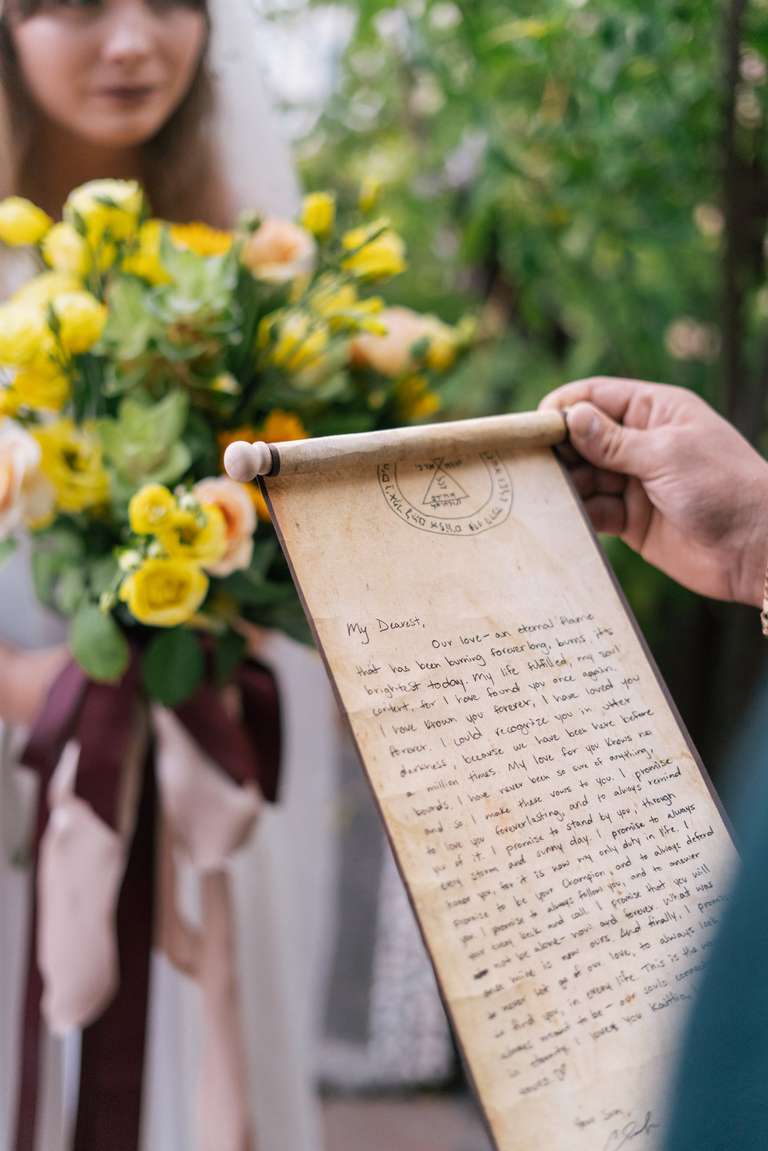 My Dearest,
Our love - an eternal flame
that has been burning foreverlong, burns its
brightest today. My life fulfilled, my soul
content, for I have found you once again.
I have known you forever, I have loved you
forever. I could recognize you in utter
darkness, because we have been here before
a million times. My love for you knows no
bounds. I have never been so sure of anything,
and so I make these vows to you. I promise
to love you foreverlasting, and to always remind
you of it. I promise to stand by you, through
every storm and sunny day. I promise to always
honor you, for it is now my only duty in life. I
promise to be your Champion, and to always defend
you. I promise to always follow you, and to answer
your every beck and call. I promise that you will
not be alone - now and forever. What was
once mine is now ours. And finally, I promise
to never let go of our love, to always look
to find you, in every life. This is the
always meant to be - our souls connected
in eternity. I love you Kaitlin,